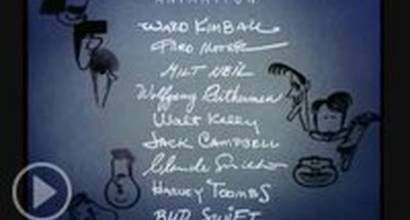 ANIMATION
WARD KIMBALL
FRED MOORE
MILT NEIL
Wolfgang Reitherman
Walt Kelly
JACK CAMPBELL
Claude Smith
HARVEY TOOMBS
BUD SWIFT